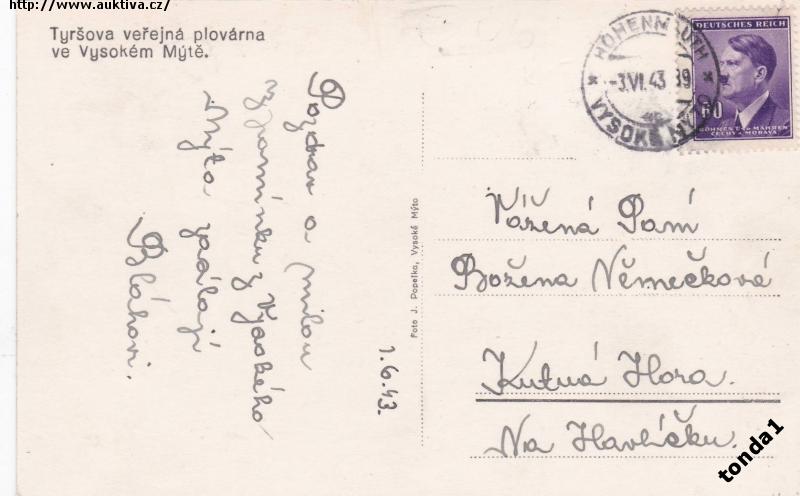 http://www.auktiva.cz/
Tyršova veřejná plovárna
ve Vysokém Mýtě.
Pozdrav a milou
vzpomínku z Vysokého
Mýta zasílají
Bláhovi.
1.6.43.
Foto J. Popelka, Vysoké Mýto
HOHENMAUTH
-3.VI.43
VYSOKÉ MÝTO
DEUTSCHES REICH
60
BÖHMEN U. MÄHREN
ČECHY A MORAVA
Vážená Paní
Božena Němečková
Kutná Hora.
Na Havlíčku.
tonda1